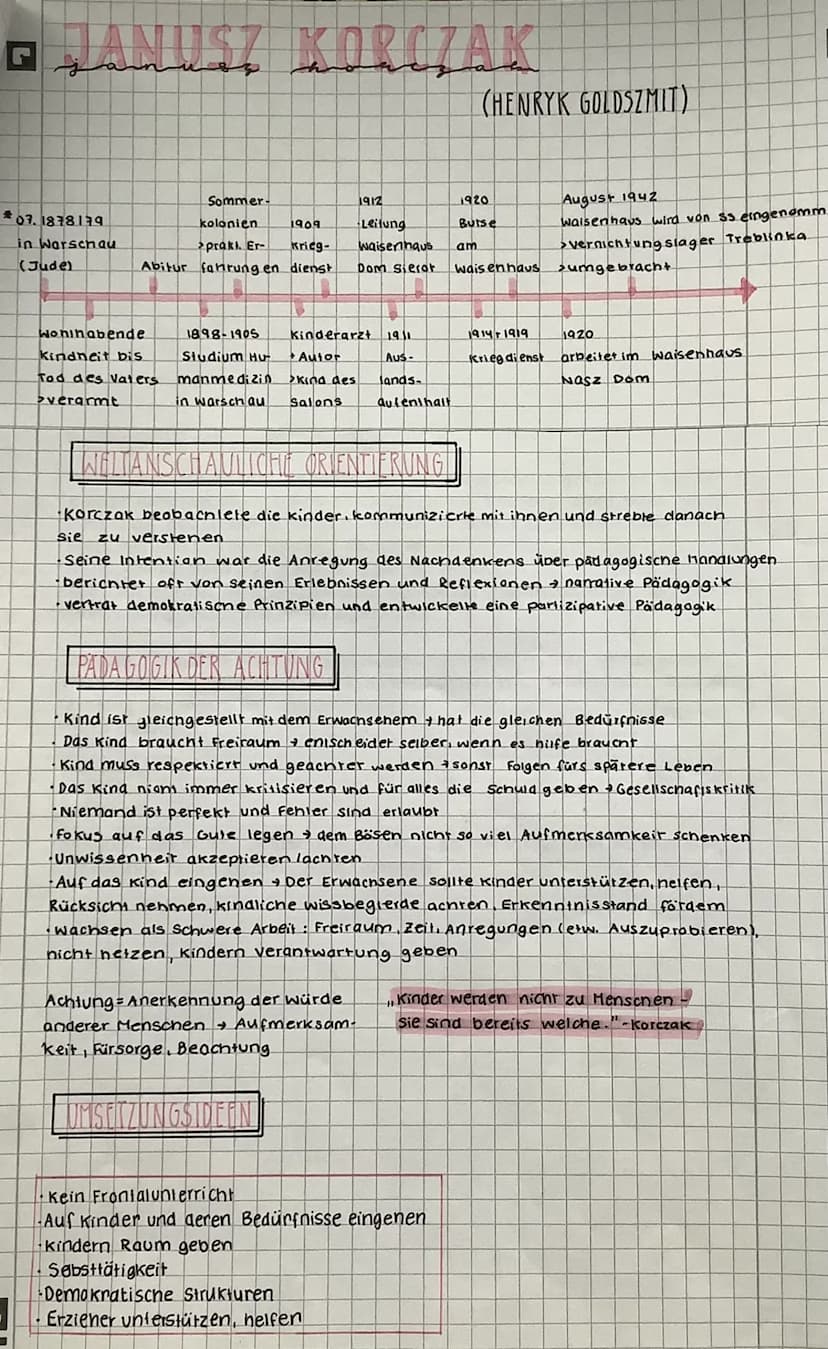 JANUSZ KORCZAK
janusz korczak
(HENRYK GOLDSZMIT)
* 07.1878179
in Warschau
(Jude)
Abitur
Sommer-
kolonien
>prakt. Er-
fahrungen
1909
Krieg-
dienst
1912
·Leitung
Waisenhaus
Dom Sierot
1920
Burse
am
Waisenhaus
August 1942
Waisenhaus wird von SS eingenomm
>Vernichtungslager Treblinka
>umgebracht
Wohlhabende
Kindheit bis
Tod des Vaters
>verarmt
1898-1905
Studium Hu-
manmedizin
in Warschau
Kinderarzt
+ Autor
>Kind des
Salons
1911
Aus-
lands-
aufenthalt
1914+1919
Kriegdienst
1920
arbeitet im Waisenhaus
Nasz Dom
WELTANSCHAULICHE ORIENTIERUNG
·Korczak beobachtete die Kinder, kommunizierte mit ihnen und strebte danach
sie zu verstehen
·Seine Intention war die Anregung des Nachdenkens über pädagogische Handlungen
·berichtet oft von seinen Erlebnissen und Reflexionen → narrative Pädagogik
·vertrat demokratische Prinzipien und entwickelte eine partizipative Pädagogik
PÄDAGOGIK DER ACHTUNG
· Kind ist gleichgestellt mit dem Erwachsenem → hat die gleichen Bedürfnisse
· Das Kind braucht Freiraum → entscheidet selber, wenn es hilfe braucht
·Kind muss respektiert und geachtet werden → sonst Folgen fürs spätere Leben
·Das Kind nicht immer kritisieren und für alles die Schuld geben → Gesellschaftskritik
·Niemand ist perfekt und Fehler sind erlaubt
·Fokus auf das Gute legen → dem Bösen nicht so viel Aufmerksamkeit schenken
·Unwissenheit akzeptieren /achten
·Auf das Kind eingehen → Der Erwachsene sollte Kinder unterstützen, helfen,
Rücksicht nehmen, kindliche wissbegierde achten, Erkenntnisstand fördern
·Wachsen als schwere Arbeit: Freiraum, Zeit, Anregungen (etw. Auszuprobieren),
nicht hetzen, Kindern Verantwortung geben
Achtung = Anerkennung der Würde
anderer Menschen → Aufmerksam-
keit, Fürsorge, Beachtung
„Kinder werden nicht zu Menschen -
sie sind bereits welche." -Korczak
UMSETZUNGSIDEEN
· Kein Frontalunterricht
·Auf Kinder und deren Bedürfnisse eingehen
·Kindern Raum geben
· Sebsttätigkeit
·Demokratische Strukturen
· Erzieher unterstützen, helfen